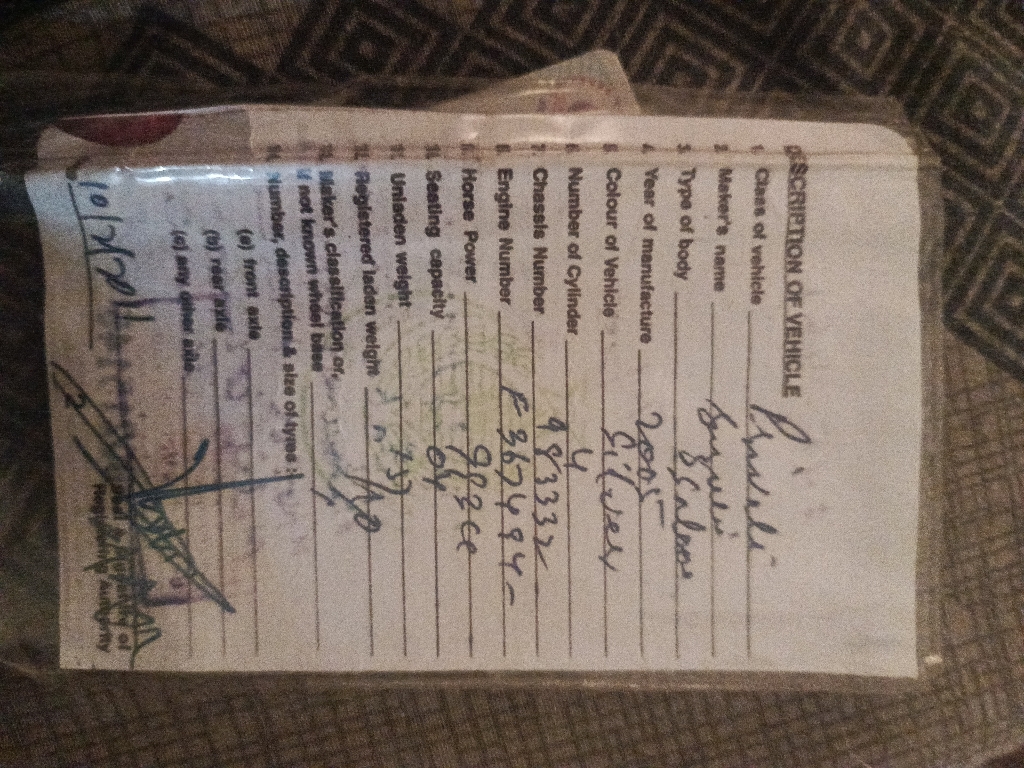 DESCRIPTION OF VEHICLE
1. Class of vehicle Private
2. Maker's name Suzuki
3. Type of body Saloon
4. Year of manufacture 2005
5. Colour of Vehicle Silver
6. Number of Cylinder 4
7. Chassis Number 983332
8. Engine Number F367494-
9. Horse Power 993cc
10. Seating capacity 04
11. Unladen weight
12. Registered laden weight
13. Maker's clasification or,
if not known wheel base
14. Number, description & size of tyres :
(a) front axle
(b) rear axle
(c) any other axle